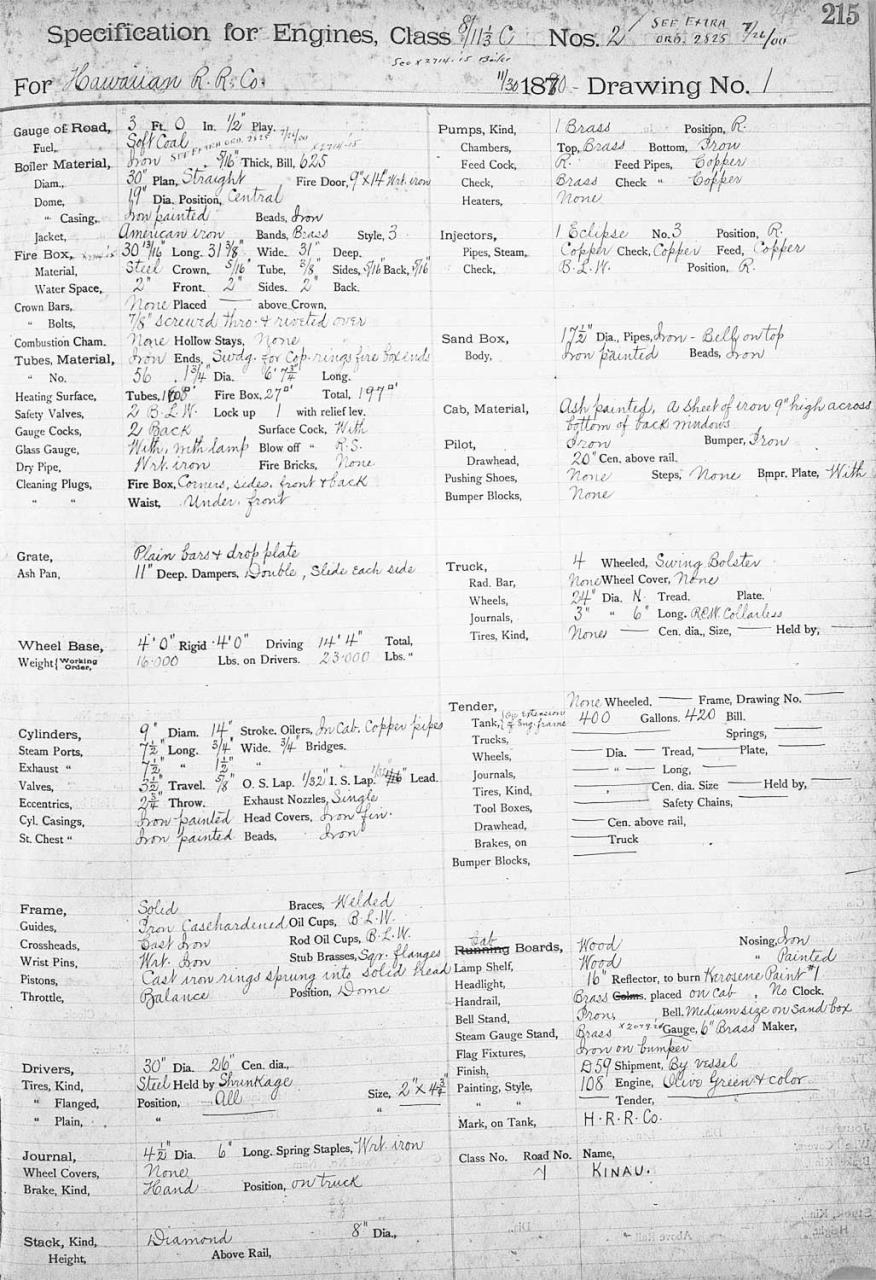 215
Specification for Engines, Class 8/11⅓ C Nos. 2 SEE EXTRA ORD. 2825 7/26/00
See x 2714-15 Boiler
For Hawaiian R. R. Co. 11/30 1890 - Drawing No. 1
Gauge of Road, 3 Ft. 0 In. ½" Play.
Fuel, Soft Coal
SEE EXTRA ORD. 2825 7/26/00 x2714-15
Boiler Material, Iron 5/16" Thick, Bill, 625
Diam., 30" Plan, Straight Fire Door, 9"x14" Wrt. iron
Dome, 19" Dia. Position, Central
" Casing, Iron painted Beads, Iron
Jacket, American iron Bands, Brass Style, 3
Fire Box, 30 13/16" Long. 31 3/8" Wide. 31" Deep.
Material, Steel Crown, 5/16" Tube, 3/8" Sides, 5/16" Back, 5/16"
Water Space, 2" Front. 2" Sides. 2" Back.
Crown Bars, None Placed — above Crown,
" Bolts, 7/8" screwed thro. & riveted over
Combustion Cham. None Hollow Stays, None
Tubes, Material, Iron Ends, Swdg. for Cop. rings fire box ends
" No. 56 . 1¾" Dia. 6' 7¾" Long.
Heating Surface, Tubes, Fire Box, 27□' Total, 197□'
Safety Valves, 2 B.L.W. Lock up 1 with relief lev.
Gauge Cocks, 2 Back Surface Cock, With
Glass Gauge, With, with lamp Blow off " R.S.
Dry Pipe, Wrt. iron Fire Bricks, None
Cleaning Plugs, Fire Box, Corners, sides, front & back
" " Waist, Under front
Grate, Plain bars & drop plate
Ash Pan, 11" Deep. Dampers, Double, Slide each side
Wheel Base, 4' 0" Rigid 4' 0" Driving 14' 4" Total,
Weight {Working Order, 16.000 Lbs. on Drivers. 23.000 Lbs. "
Cylinders, 9" Diam. 14" Stroke. Oilers, In Cab. Copper pipes
Steam Ports, 7½" Long. ¾" Wide. ¾" Bridges.
Exhaust " 7½" " 1½" "
Valves, 3½" Travel. 5/8" O. S. Lap. 1/32" I. S. Lap. Lead.
Eccentrics, Throw. Exhaust Nozzles, Single
Cyl. Casings, Iron painted Head Covers, Iron fin.
St. Chest " Iron painted Beads, Iron
Frame, Solid Braces, Welded
Guides, Iron Casehardened Oil Cups, B.L.W.
Crossheads, Cast Iron Rod Oil Cups, B.L.W.
Wrist Pins, Wrt. Iron Stub Brasses, Sqr. flanges
Pistons, Cast iron rings sprung into solid head
Throttle, Balance Position, Dome
Drivers, 30" Dia. 26" Cen. dia.,
Tires, Kind, Steel Held by Shrinkage
" Flanged, Position, All Size, 2" x 4¾"
" Plain, " — " —
Journal, 4½" Dia. 6" Long. Spring Staples, Wrt. iron
Wheel Covers, None
Brake, Kind, Hand Position, on truck
Stack, Kind, Diamond 8" Dia.,
Height, Above Rail,
Pumps, Kind, 1 Brass Position, R.
Chambers, Top, Brass Bottom, Iron
Feed Cock, R. Feed Pipes, Copper
Check, Brass Check " Copper
Heaters, None
Injectors, 1 Eclipse No. 3 Position, R.
Pipes, Steam, Copper Check, Copper Feed, Copper
Check, B.L.W. Position, R.
Sand Box, 17½" Dia., Pipes, Iron - Bell on top
Body, Iron painted Beads, Iron
Cab, Material, Ash painted, A sheet of iron 9" high across
bottom of back windows
Pilot, Iron Bumper, Iron
Drawhead, 20" Cen. above rail.
Pushing Shoes, None Steps, None Bmpr. Plate, With
Bumper Blocks, None
Truck, 4 Wheeled, Swing Bolster
Rad. Bar, None Wheel Cover, None
Wheels, 24" Dia. N. Tread. Plate.
Journals, 3" " 6" Long. Collarless
Tires, Kind, None — Cen. dia., Size, — Held by, —
Tender, None Wheeled. — Frame, Drawing No. —
Tank, {On extension of Eng. frame 400 Gallons. 420 Bill.
Trucks, — Springs, —
Wheels, — Dia. — Tread, — Plate, —
Journals, — " — Long, —
Tires, Kind, — Cen. dia. Size — Held by, —
Tool Boxes, — Safety Chains, —
Drawhead, — Cen. above rail,
Brakes, on — Truck
Bumper Blocks, —
Cab Running Boards, Wood Nosing, Iron
Lamp Shelf, Wood " Painted
Headlight, 16" Reflector, to burn Kerosene Paint #1
Handrail, Brass Colms. placed on Cab. No Clock.
Bell Stand, Iron, Bell. Medium size on sand box
Steam Gauge Stand, Brass Gauge, 6" Brass Maker,
Flag Fixtures, Iron on bumper
Finish, D59 Shipment, By vessel
Painting, Style, 108 Engine, Olive Green & color
" " — Tender, —
Mark, on Tank, H.R.R.Co.
Class No. Road No. Name,
1 KINAU.